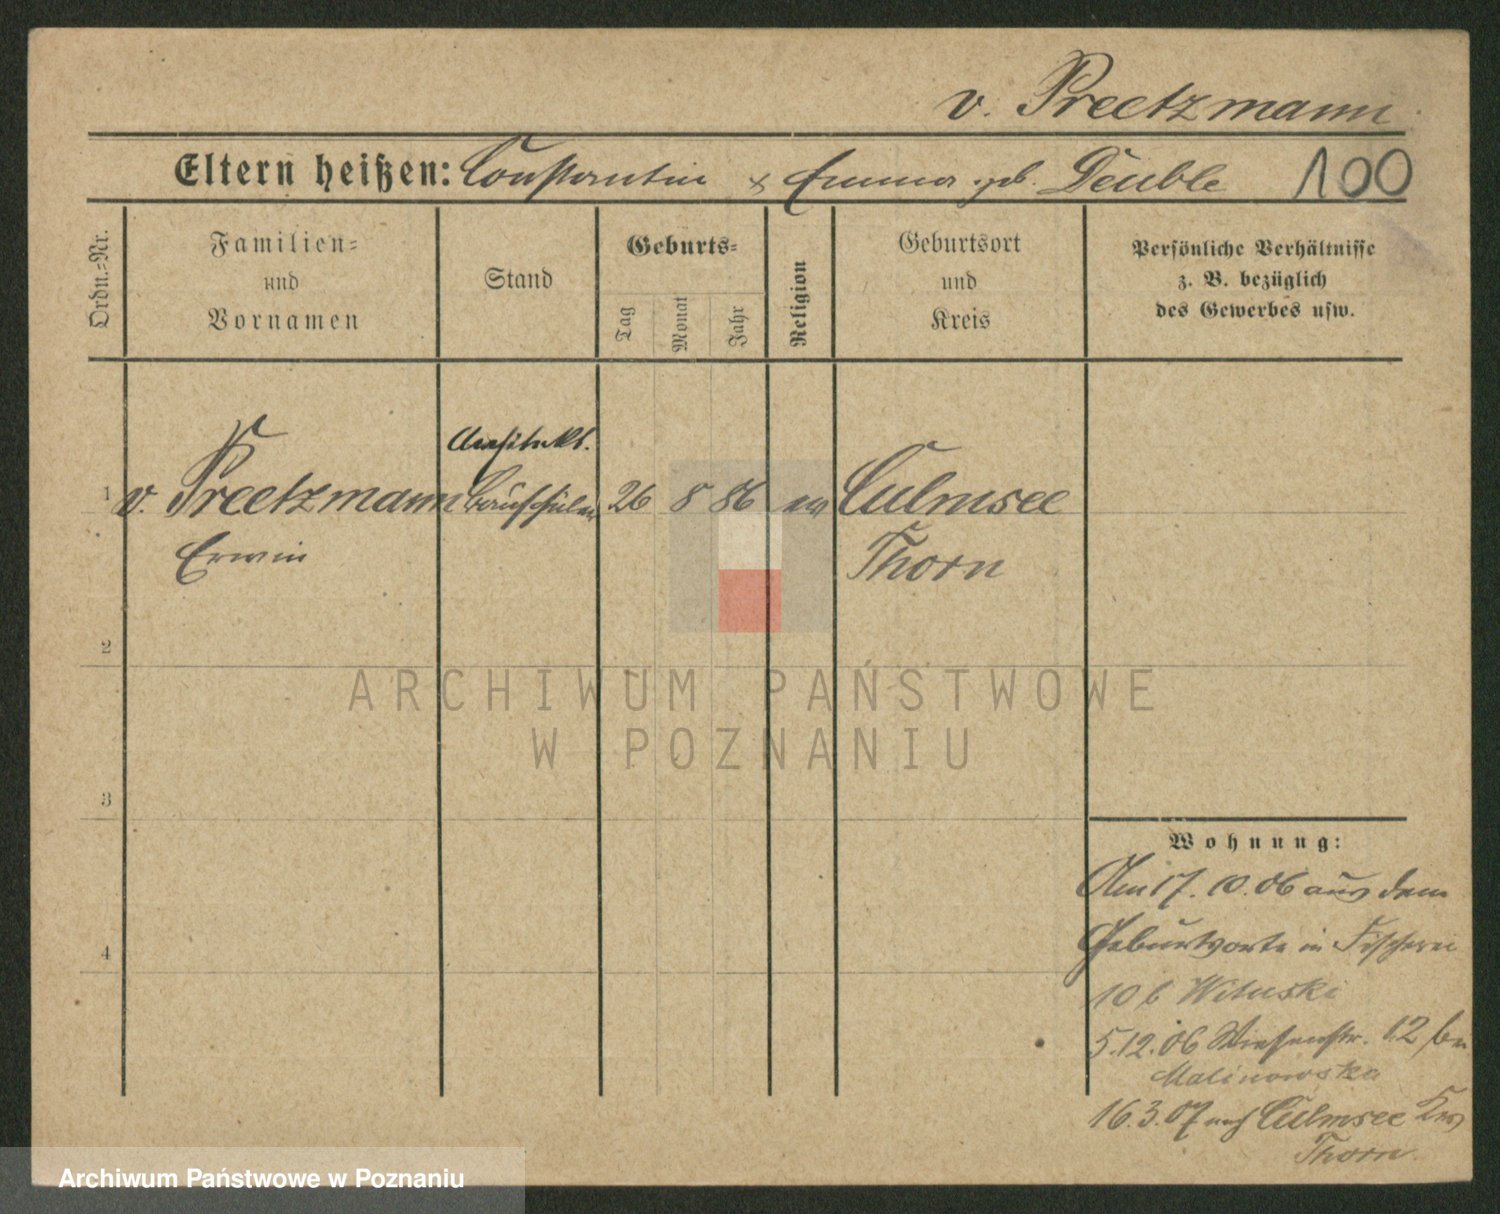 v. Preetzmann
Eltern heißen: Constantin & Emma geb. Deuble 100
Ordn.=Nr.
Familien=
und
Vornamen
Stand
Geburts=
Tag
Monat
Jahr
Religion
Geburtsort
und
Kreis
Persönliche Verhältnisse
z. B. bezüglich
des Gewerbes usw.
Architekt.
1 v. Preetzmann Bauschüler 26 8 86 ev Culmsee
Erwin Thorn
2
3
4
Wohnung:
Am 17. 10. 06 aus dem
Geburtsorte in Fischerei
10 b Wituski
5.12.06 Wiesenstr. 12 bei
Malinowska
16.3.07 nach Culmsee Krs
Thorn.
ARCHIWUM PAŃSTWOWE
W POZNANIU
Archiwum Państwowe w Poznaniu